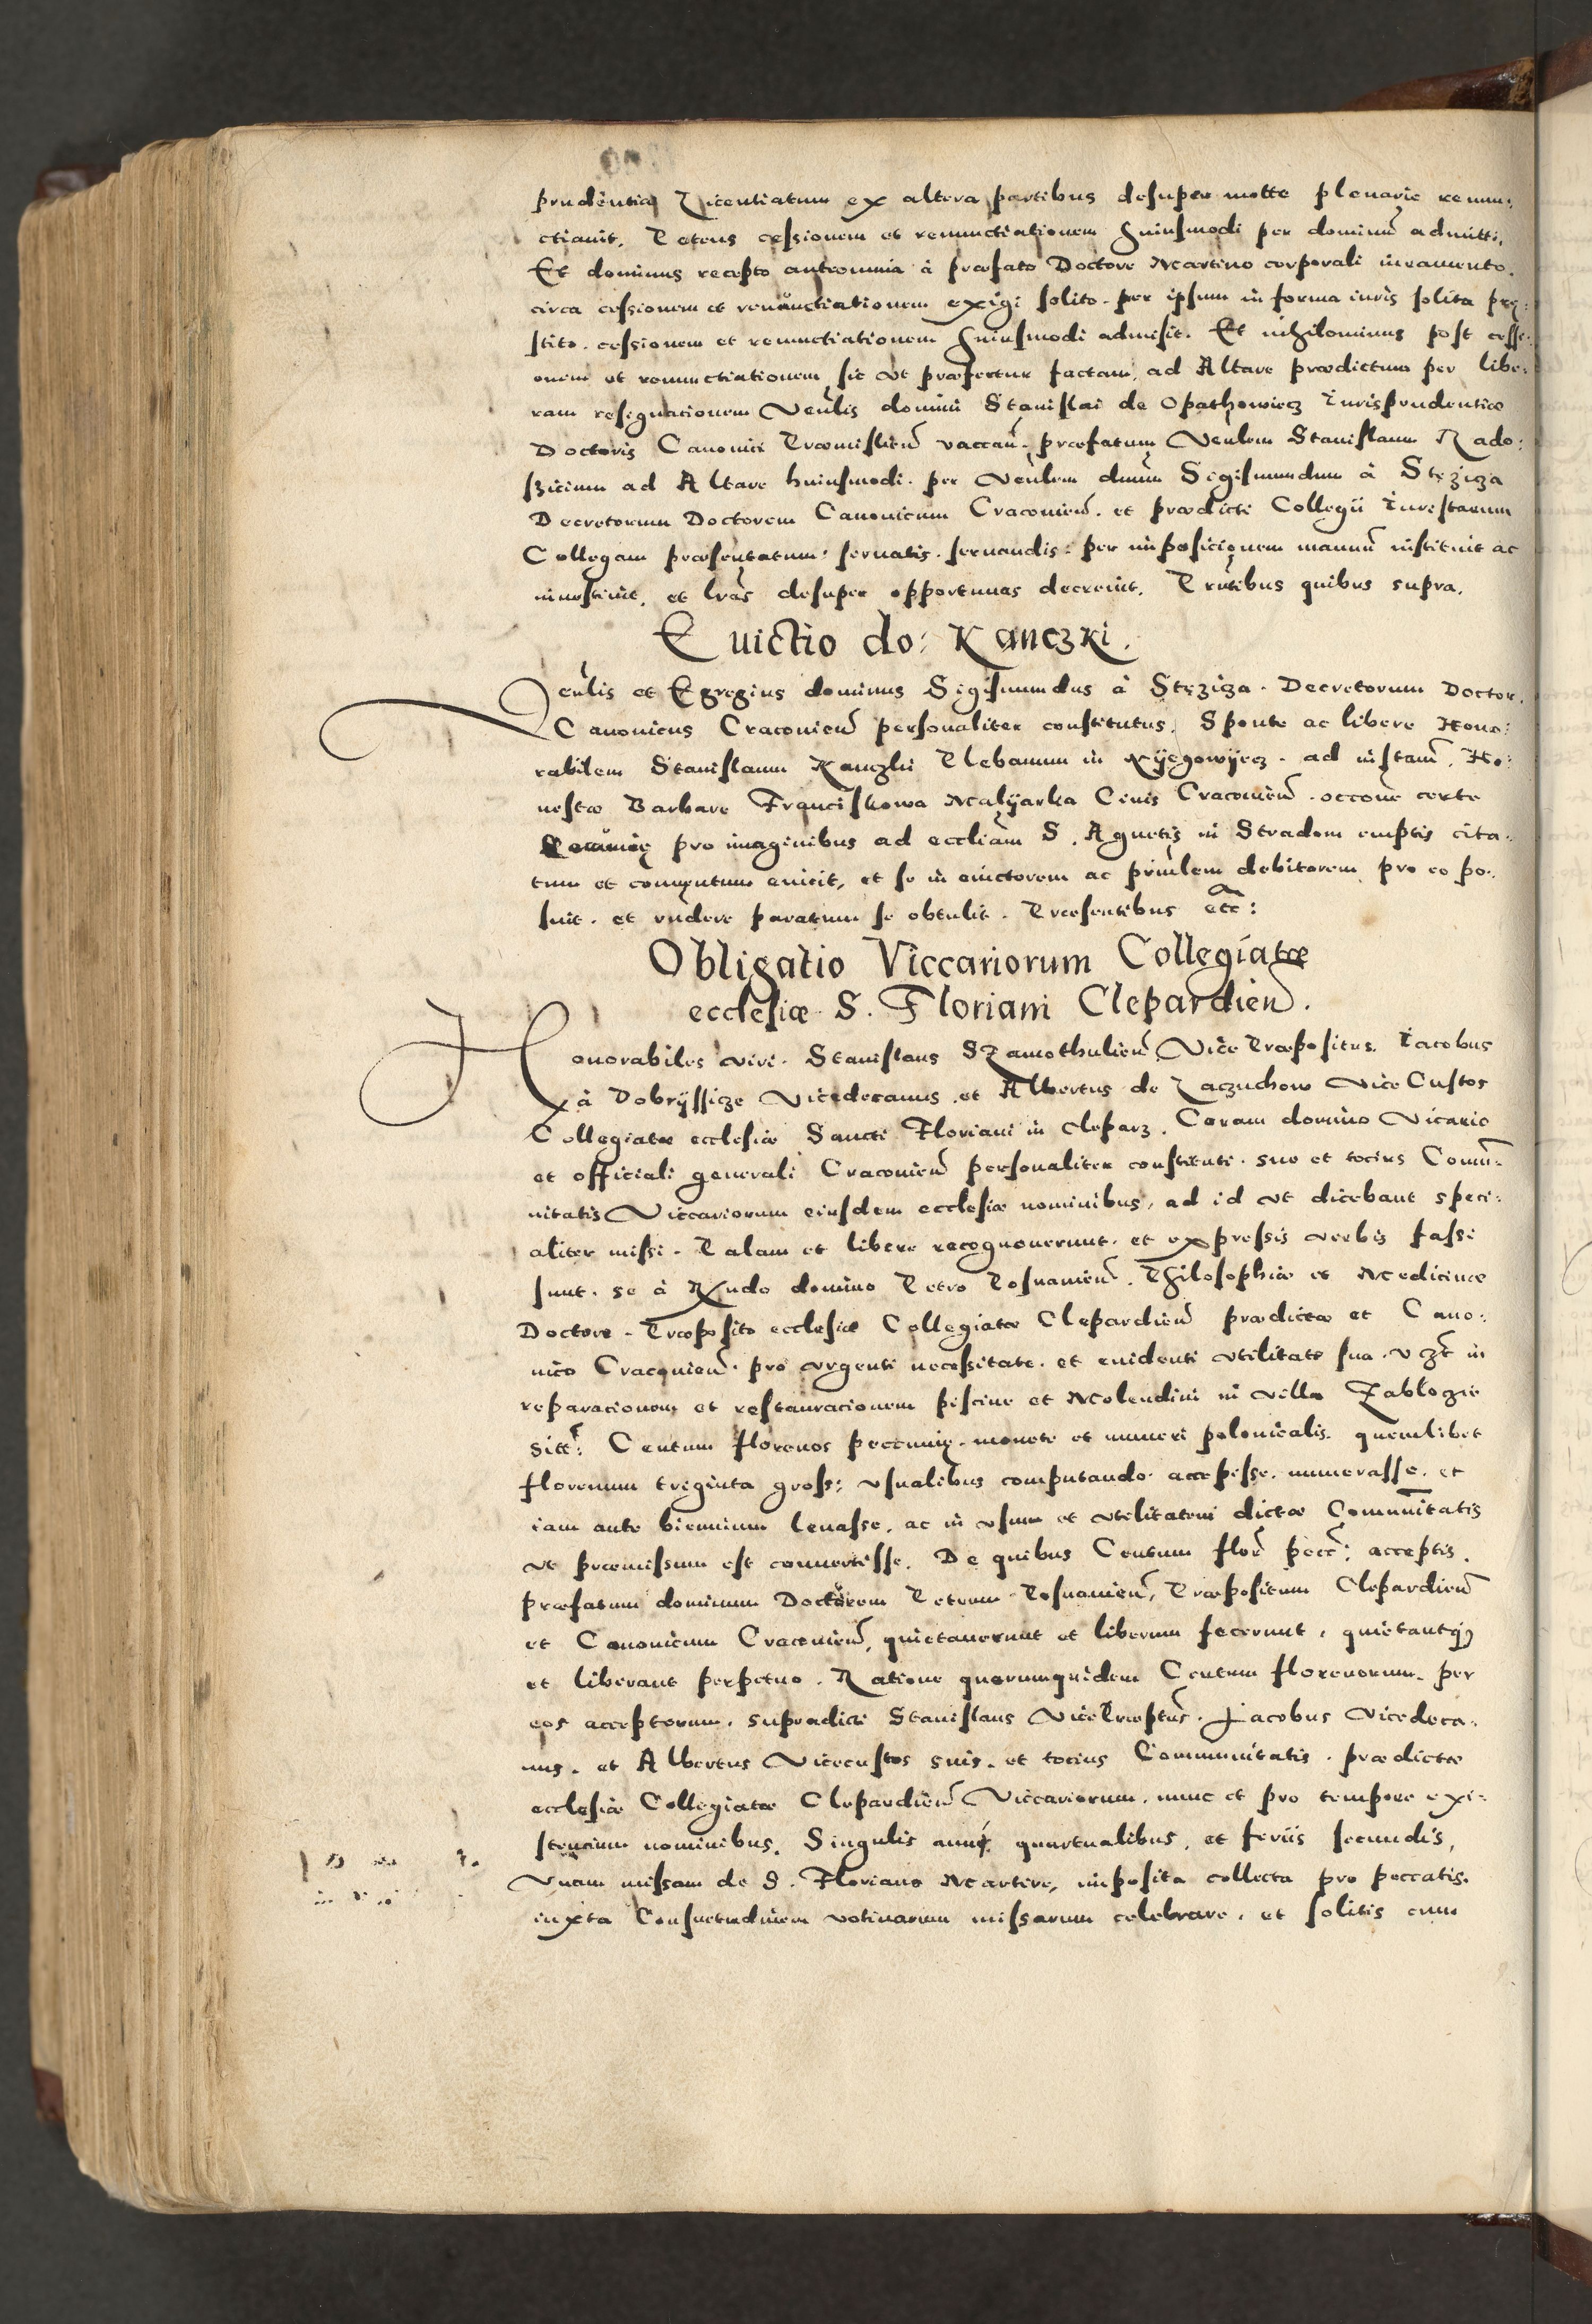 prudentiæ Licentiatum ex altera partibus desuper motte plenarie renun:
ctiauit. Petens cessionem et renunctiationem huiusmodi per dominũ admitti.
Et dominus recepto anteomnia à præfato Doctore Martino corporali iuramento.
circa cessionem et renunctiationem exigi solito. per ipsum in forma iuris solita prę:
stito. cessionem et renunctiationem huiusmodi admisit. Et nihilominus post cessi:
onem et renunctiationem sic vt præfertur factam, ad Altare prædictum per libe:
ram resignationem Veñlis domini Stanislai de Opathowiecz Iurisprudentiæ
Doctoris Canonici Præmislieñ vaccañ. præfatum Veñlem Stanislaum Rado:
szicium ad Altare huiusmodi. per Veñlem dnum Sigismundum à Stęzicza
Decretorum Doctorem Canonicum Cracovieñ. et prædicti Collegii Iuristarum
Collegam præsentatum: seruatis. seruandis: per imposicionem manuũ instituit ac
inuestiuit, et lrãs desuper opportunas decreuit. Prñtibus quibus supra.
Euictio do: Kanczki.
Veñlis et Egregius dominus Sigismundus à Stęzicza. Decretorum Doctor.
Canonicus Cracouieñ personaliter constitutus. Sponte ac libere Hono:
rabilem Stanislaum Kanczki Plebanum in Xyęgowyecz. ad instañ. Ho:
nestæ Barbare Franciskowa Malyarka Ciuis Cracouieñ. occone certe
pecunię pro imaginibus ad eccliam S. Agnetis in Stradom emptis cita:
tum et conuentum euicit, et se in euictorem ac prinlem debitorem pro eo po:
suit. et rñdere paratum se obtulit. Præsentibus etc:
Obligatio Viccariorum Collegiatæ
ecclesiæ S. Floriani Clepardieñ.
Honorabiles viri. Stanislaus Szamothulieñ Vice Præpositus. Iacobus
à Dobryssicze Vicedecanus et Albertus de Laczuchow Vice Custos
Collegiatæ ecclesiæ Sancti Floriani in Cleparz. Coram domino Vicario
et officiali generali Cracouieñ personaliter constituti. suo et tocius Comu:
nitatis Viccariorum eiusdem ecclesiæ nominibus, ad id vt dicebant speci:
aliter missi. Palam et libere recognouerunt. et expressis verbis fassi
sunt. se à Rndo domino Petro Posnanieñ. Philosophiæ et Medicinæ
Doctore. Præposito ecclesiæ Collegiatæ Clepardieñ prædictæ et Cano:
nico Cracouieñ. pro vrgenti necessitate. et euidenti vtilitate sua. vczt in
reparacionem et restauracionem piscine et Molendini in villa Zabłoczie
sitt: Centum florenos peccunię. monete et numeri polonicalis. quemlibet
florenum triginta gross: vsualibus computando. accepisse. numerasse. et
iam ante biennium leuasse. ac in vsum et vtilitatem dictæ Comunitatis
vt præmissum est conuertisse. De quibus Centum flor pecc: acceptis.
præfatum dominum Doctorem Petrum Posnanieñ, Præpositum Clepardieñ
et Canonicum Cracouieñ, quietauerunt et liberum fecerunt. quietantq3
et liberant perpetuo. Ratione quorumquidem Centum florenorum. per
eos acceptorum. supradicti Stanislaus VicePræptus. Jacobus Vicedeca:
nus. et Albertus Vicecustos suis. et tocius Communitatis. prædictæ
ecclesiæ Collegiatæ Clepardieñ Viccariorum. nunc et pro tempore exi:
stentium nominibus. Singulis anni quartualibus, et feriis secundis,
Vnam missam de S. Floriano Martire, imposita collecta pro peccatis.
iuxta Consuetudinem votiuarum missarum celebrare. et solitis cum